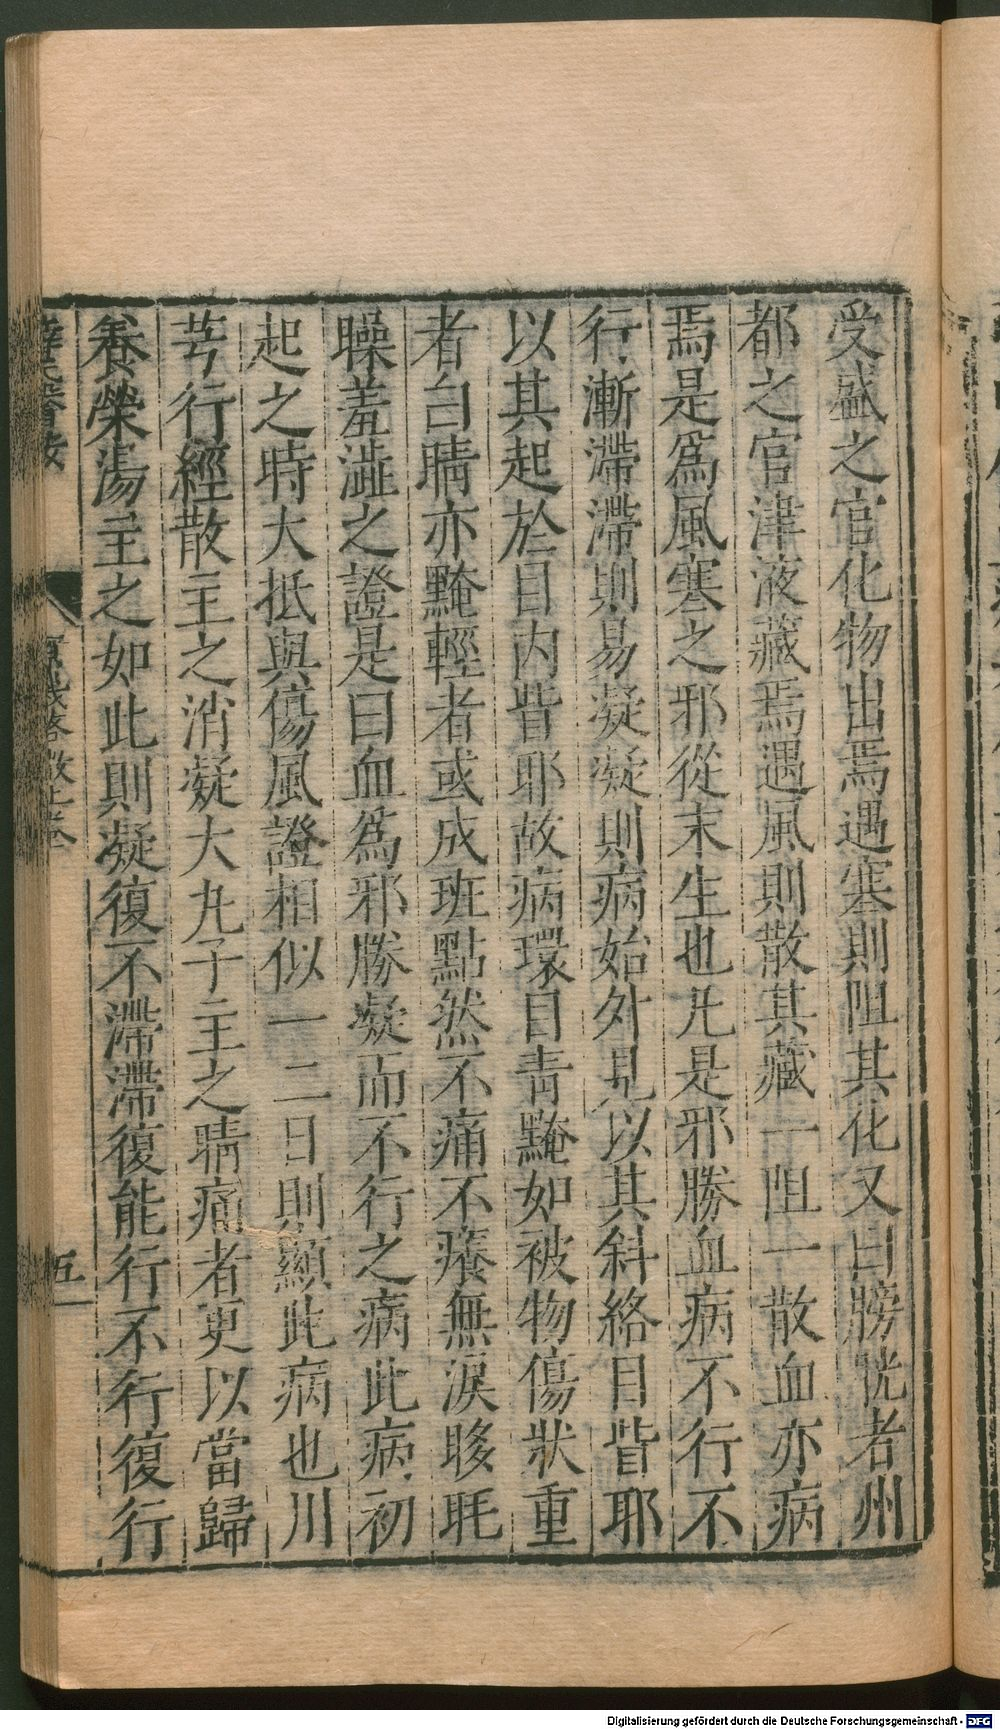 受盛之官化物出焉遇塞則阻其化又曰膀恍者州
都之官津液藏焉遇風則散其藏一阻一散血亦病
焉是爲風寒之邪從末生也凢是邪勝血病不行不
行漸滯滯則易凝凝則病始外見以其斜絡目眥耶
以其起於目内眥耶故病環目青黤如被物傷狀重
者白睛亦黤輕者或成班點然不痛不癢無淚眵眊
矂羞澁之證是曰血爲邪勝凝而不行之病此病初
起之時大抵與傷風證相似一二日則顯此病也川
芎行經散主之消凝大丸子主之睛痛者更以當歸
養榮湯主之如此則凝復不滯滯復能行不行復行
五
Digitalisierung gefördert durch die Deutsche Forschungsgemeinschaft - DFG